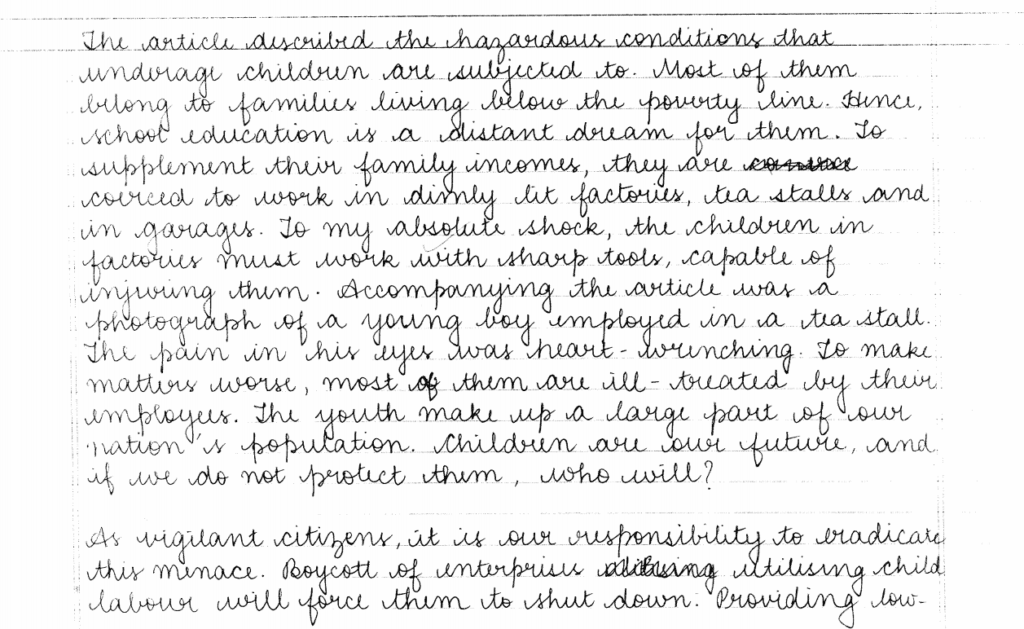 The article described the hazardous conditions that
underage children are subjected to. Most of them
belong to families living below the poverty line. Hence,
school education is a distant dream for them. To
supplement their family incomes, they are
coerced to work in dimly lit factories, tea stalls and
in garages. To my absolute shock, the children in
factories must work with sharp tools, capable of
injuring them. Accompanying the article was a
photograph of a young boy employed in a tea stall.
The pain in his eyes was heart-wrenching. To make
matters worse, most of them are ill-treated by their
employees. The youth make up a large part of our
nation's population. Children are our future, and
if we do not protect them, who will?
As vigilant citizens, it is our responsibility to eradicate
this menace. Boycott of enterprises utilising child
labour will force them to shut down. Providing low-